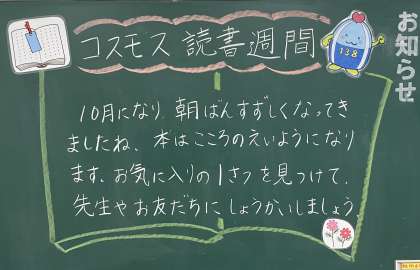 お知らせ
コスモス 読書週間
138
10月になり、朝ばんすずしくなってき
ましたね、本はこころのえいようになり
ます。お気に入りの1さつを見つけて、
先生やお友だちにしょうかいしましょう